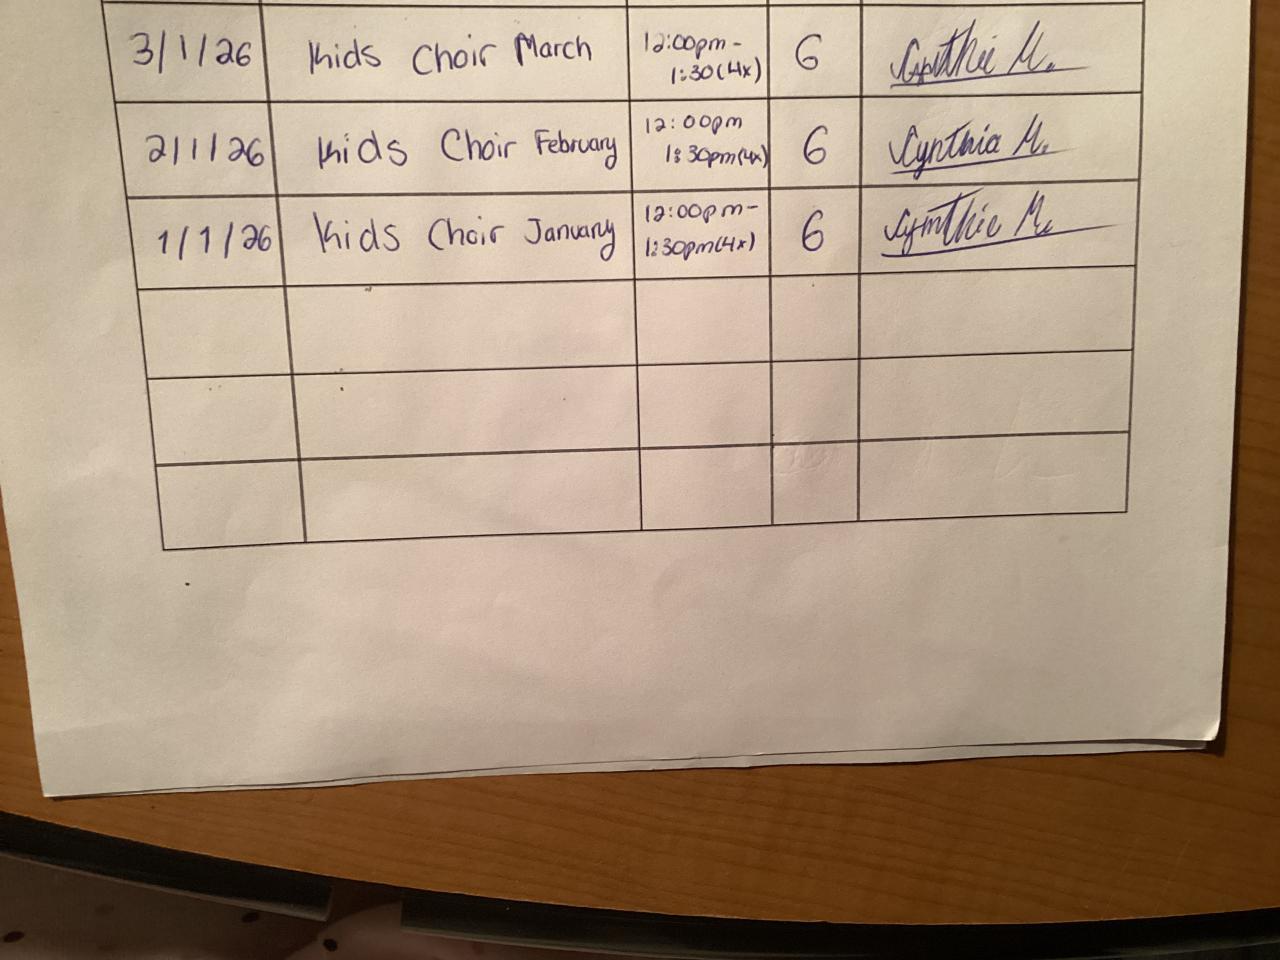 3/1/26 Kids Choir March 12:00pm- 6 Cynthia M.
1:30(4x)
2/1/26 Kids Choir February 12:00pm 6 Cynthia M.
1:30pm(4x)
1/1/26 Kids Choir January 12:00pm- 6 Cynthia M.
1:30pm(4x)